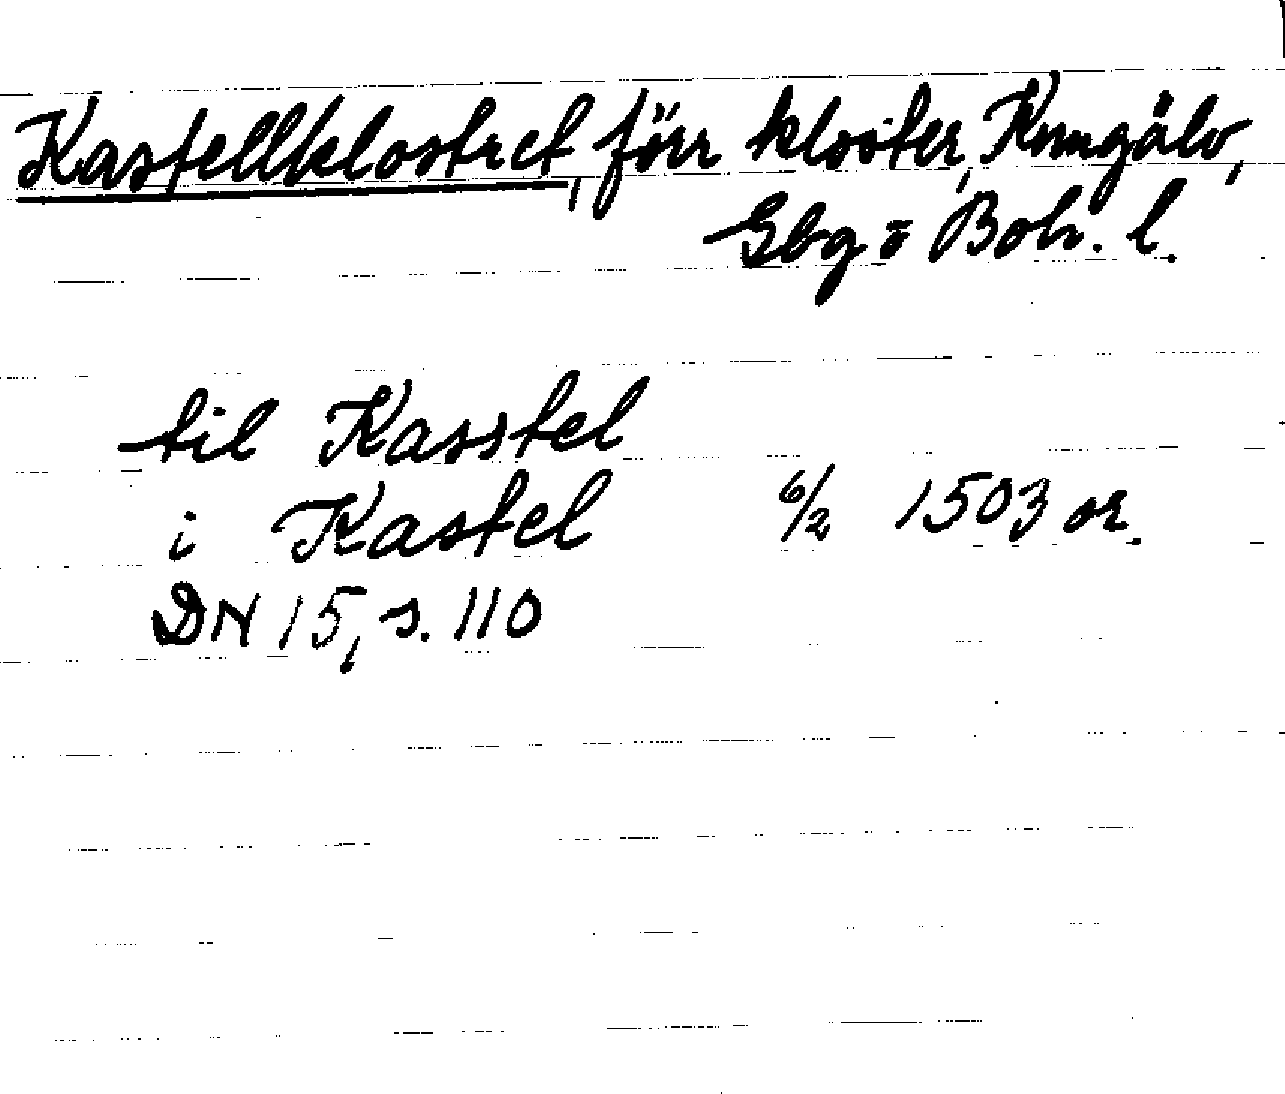 Kastellklostret, förr kloster, Kungälv,
Gbg o Boh. l.
til Kasstel
i Kastel 6/2 1503 or.
DN 15, s. 110